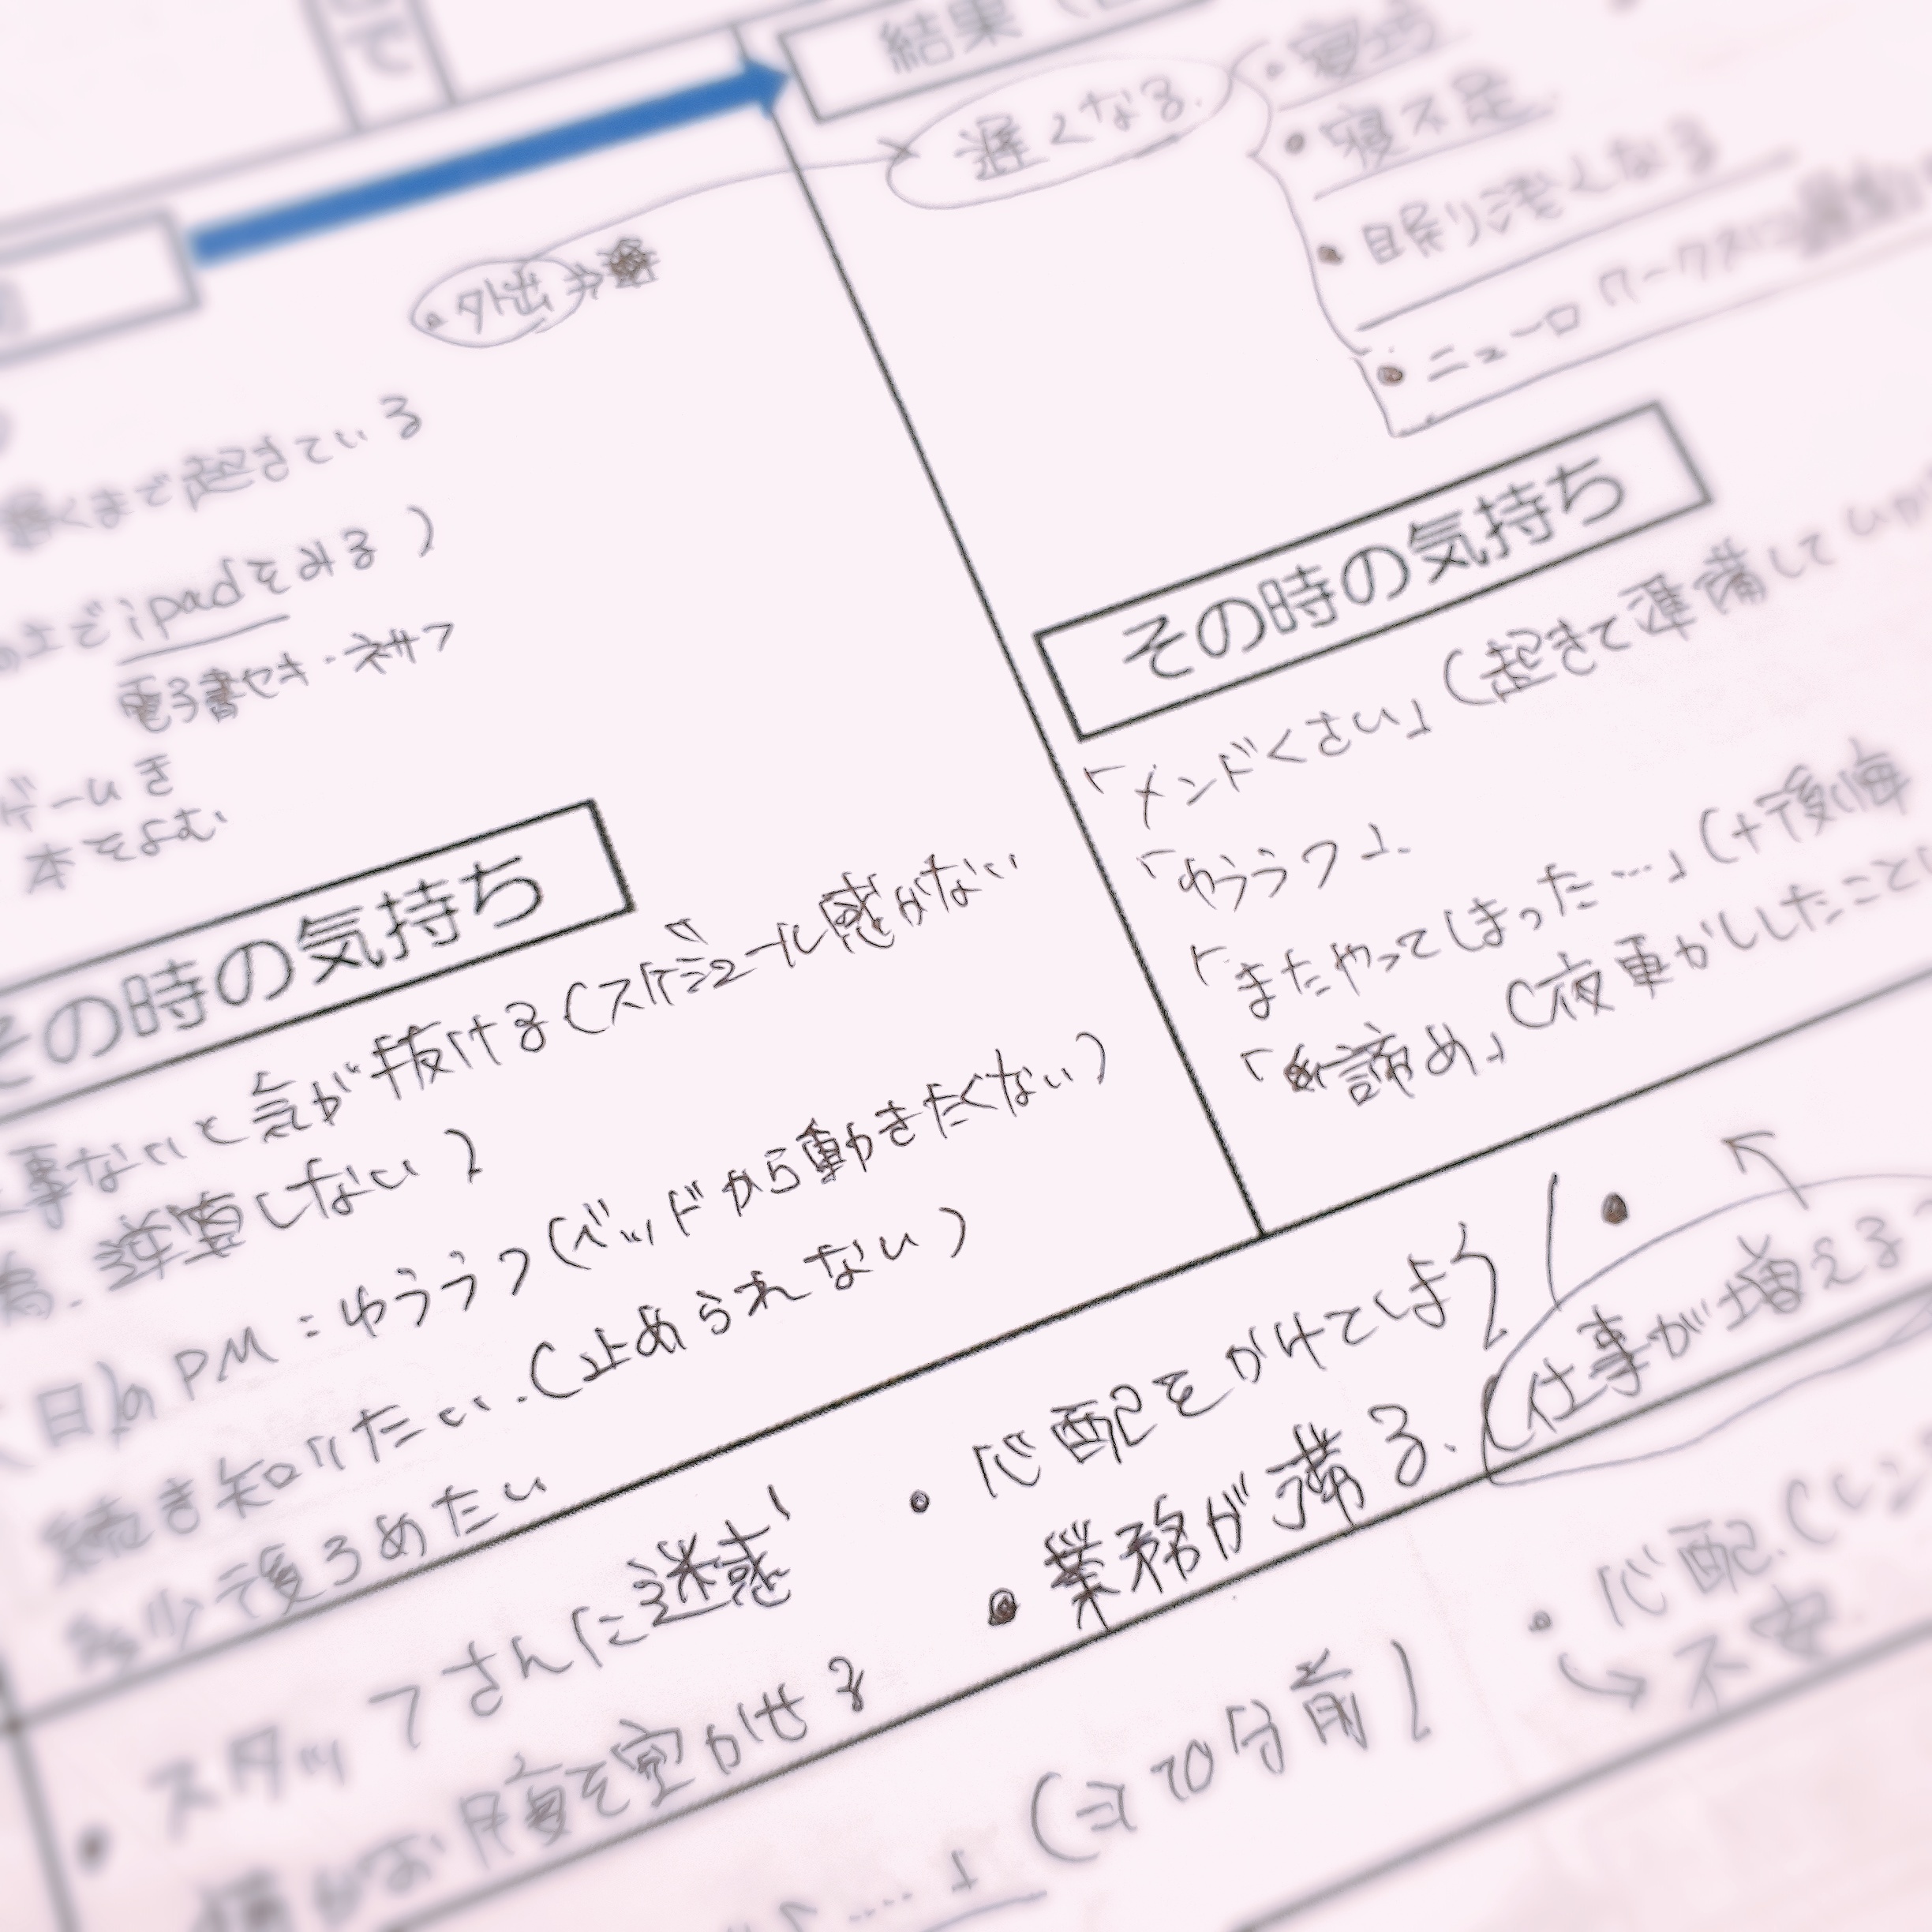 結果
遅くなる.
・寝坊
・寝不足
・眠り浅くなる
・ニューロワークスに
・外出
くまで起きている
でipadをみる)
電子書セキ・ネサフ
ゲームき
本をよむ
その時の気持ち
「メンドくさい」(起きて準備して
「ゆううつ」.
「またやってしまった…」(+後悔
「諦め」(夜更かししたこと
その時の気持ち
事ないと気が抜ける(スケジュール感がない
為.逆算しない)
日)のPM:ゆううつ(ベッドから動きたくない)
続き知りたい.(止められない)
多少後ろめたい
・スタッフさんに迷惑
・心配をかけてしまう
・業務が滞る.(仕事が増える
お腹を空かせる
(=20分前)
・心配.
→不安